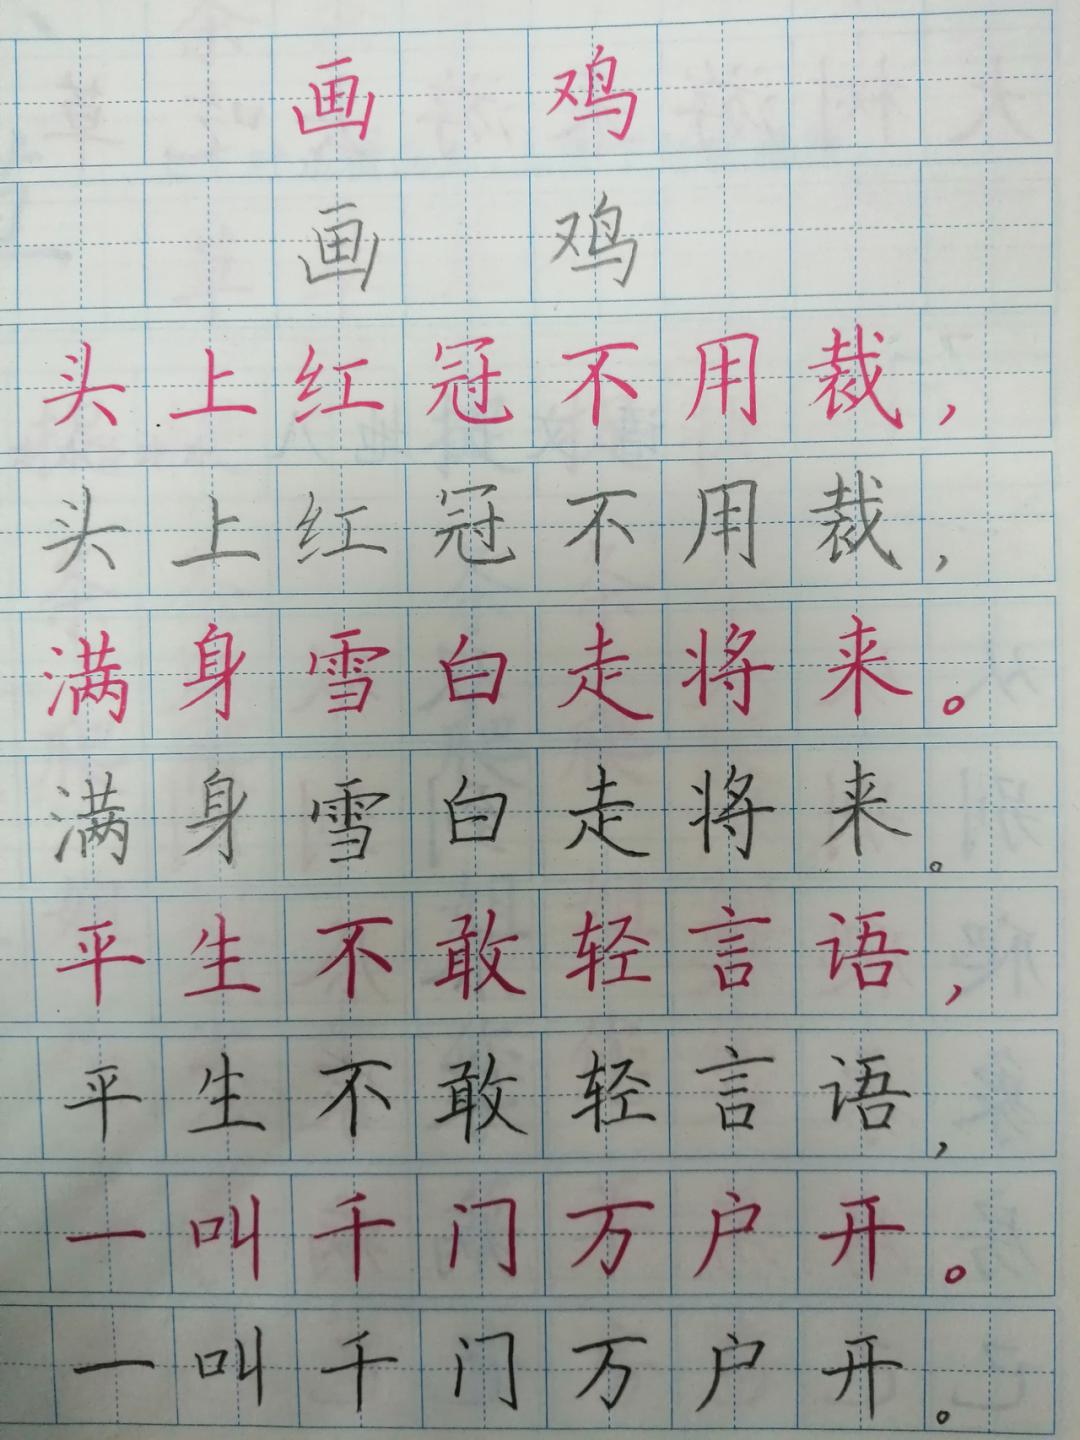 画 鸡
画 鸡
头上红冠不用裁，
头上红冠不用裁，
满身雪白走将来。
满身雪白走将来。
平生不敢轻言语，
平生不敢轻言语，
一叫千门万户开。
一叫千门万户开。